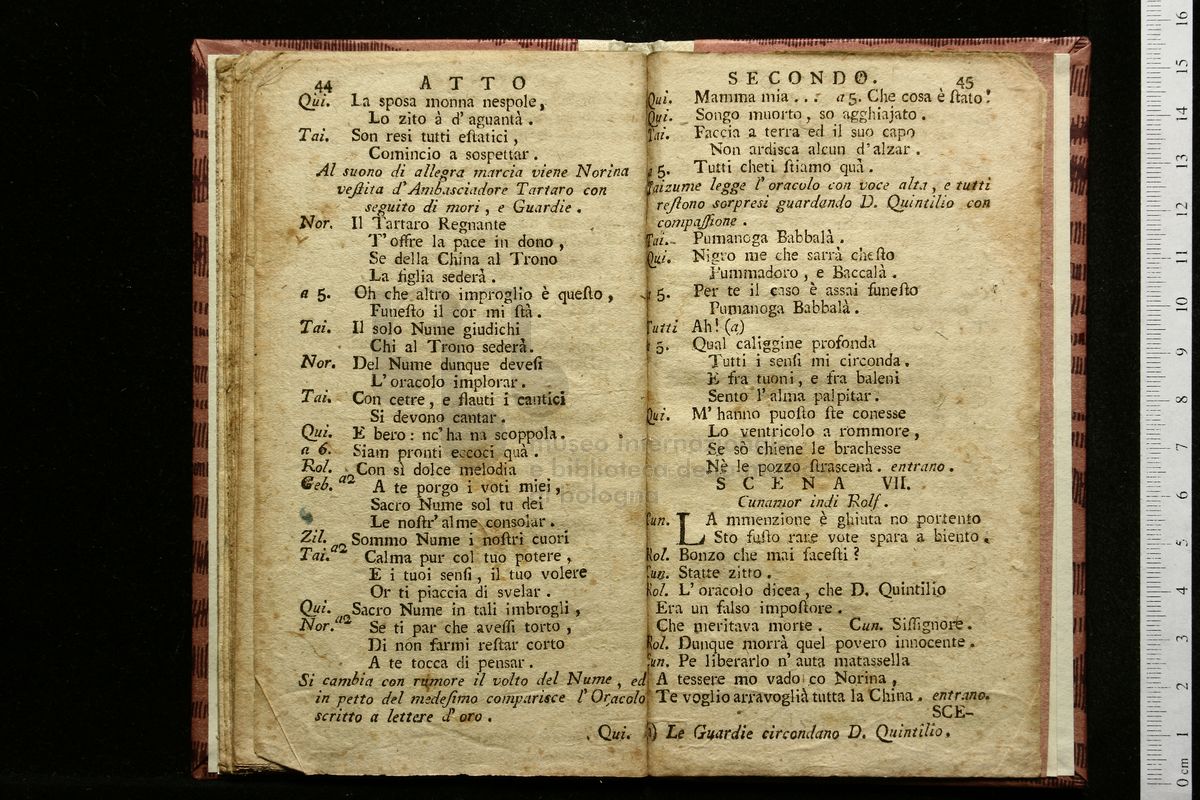 44 ATTO
Qui. La sposa monna nespole,
Lo zito à d'aguantà.
Tai. Son resi tutti eſtatici,
Comincio a sospettar.
Al suono di allegra marcia viene Norina
veſtita d'Ambasciadore Tartaro con
seguito di mori, e Guardie.
Nor. Il Tartaro Regnante
T'offre la pace in dono,
Se della China al Trono
La figlia sederà.
a 5. Oh che altro improglio è queſto,
Funeſto il cor mi ſtà.
Tai. Il solo Nume giudichi
Chi al Trono sederà.
Nor. Del Nume dunque deveſi
L'oracolo implorar.
Tai. Con cetre, e flauti i cantici
Si devono cantar.
Qui. E bero: nc'ha na scoppola.
a 6. Siam pronti eccoci quà.
Rol. Con sì dolce melodia
Geb. a2 A te porgo i voti miei,
Sacro Nume sol tu dei
Le noſtr'alme consolar.
Zil. Sommo Nume i noſtri cuori
Tai. a2 Calma pur col tuo potere,
E i tuoi sensi, il tuo volere
Or ti piaccia di svelar.
Qui. Sacro Nume in tali imbrogli,
Nor. a2 Se ti par che aveſſi torto,
Di non farmi reſtar corto
A te tocca di pensar.
Si cambia con rumore il volto del Nume, ed
in petto del medeſimo comparisce l'Oracolo
scritto a lettere d'oro.
Qui.
SECONDO. 45
Qui. Mamma mia ... a 5. Che cosa è ſtato!
Qui. Songo muorto, so agghiajato.
Tai. Faccia a terra ed il suo capo
Non ardisca alcun d'alzar.
a 5. Tutti cheti ſtiamo quà.
Taizume legge l'oracolo con voce alta, e tutti
reſtono sorpresi guardando D. Quintilio con
compaſſione.
Tai. Pumanoga Babbalà.
Qui. Nigro me che sarrà cheſto
Pummadoro, e Baccalà.
a 5. Per te il caso è assai funeſto
Pumanoga Babbalà.
Tutti Ah! (a)
a 5. Qual caliggine profonda
Tutti i sensi mi circonda.
E fra tuoni, e fra baleni
Sento l'alma palpitar.
Qui. M'hanno puoſto ſte conesse
Lo ventricolo a rommore,
Se sò chiene le brachesse
Nè le pozzo ſtrascenà. entrano.
SCENA VII.
Cunamor indi Rolf.
Cun. LA mmenzione è ghiuta no portento
Sto fuſto rare vote spara a biento.
Rol. Bonzo che mai faceſti?
Cun. Statte zitto.
Rol. L'oracolo dicea, che D. Quintilio
Era un falso impoſtore.
Che meritava morte. Cun. Siſſignore.
Rol. Dunque morrà quel povero innocente.
Cun. Pe liberarlo n'auta matassella
A tessere mo vado co Norina,
Te voglio arravoglià tutta la China. entrano.
SCE-
(a) Le Guardie circondano D. Quintilio.
museo internazionale
e biblioteca della
bologna
16
15
14
13
12
11
10
9
8
7
6
5
4
3
2
1
0 cm